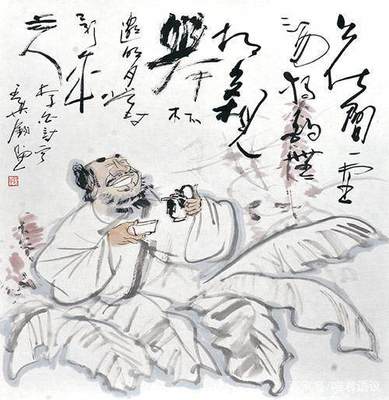 花间一壶
酒独酌无
相亲
举杯
邀明月对
影成
三人
李白诗意